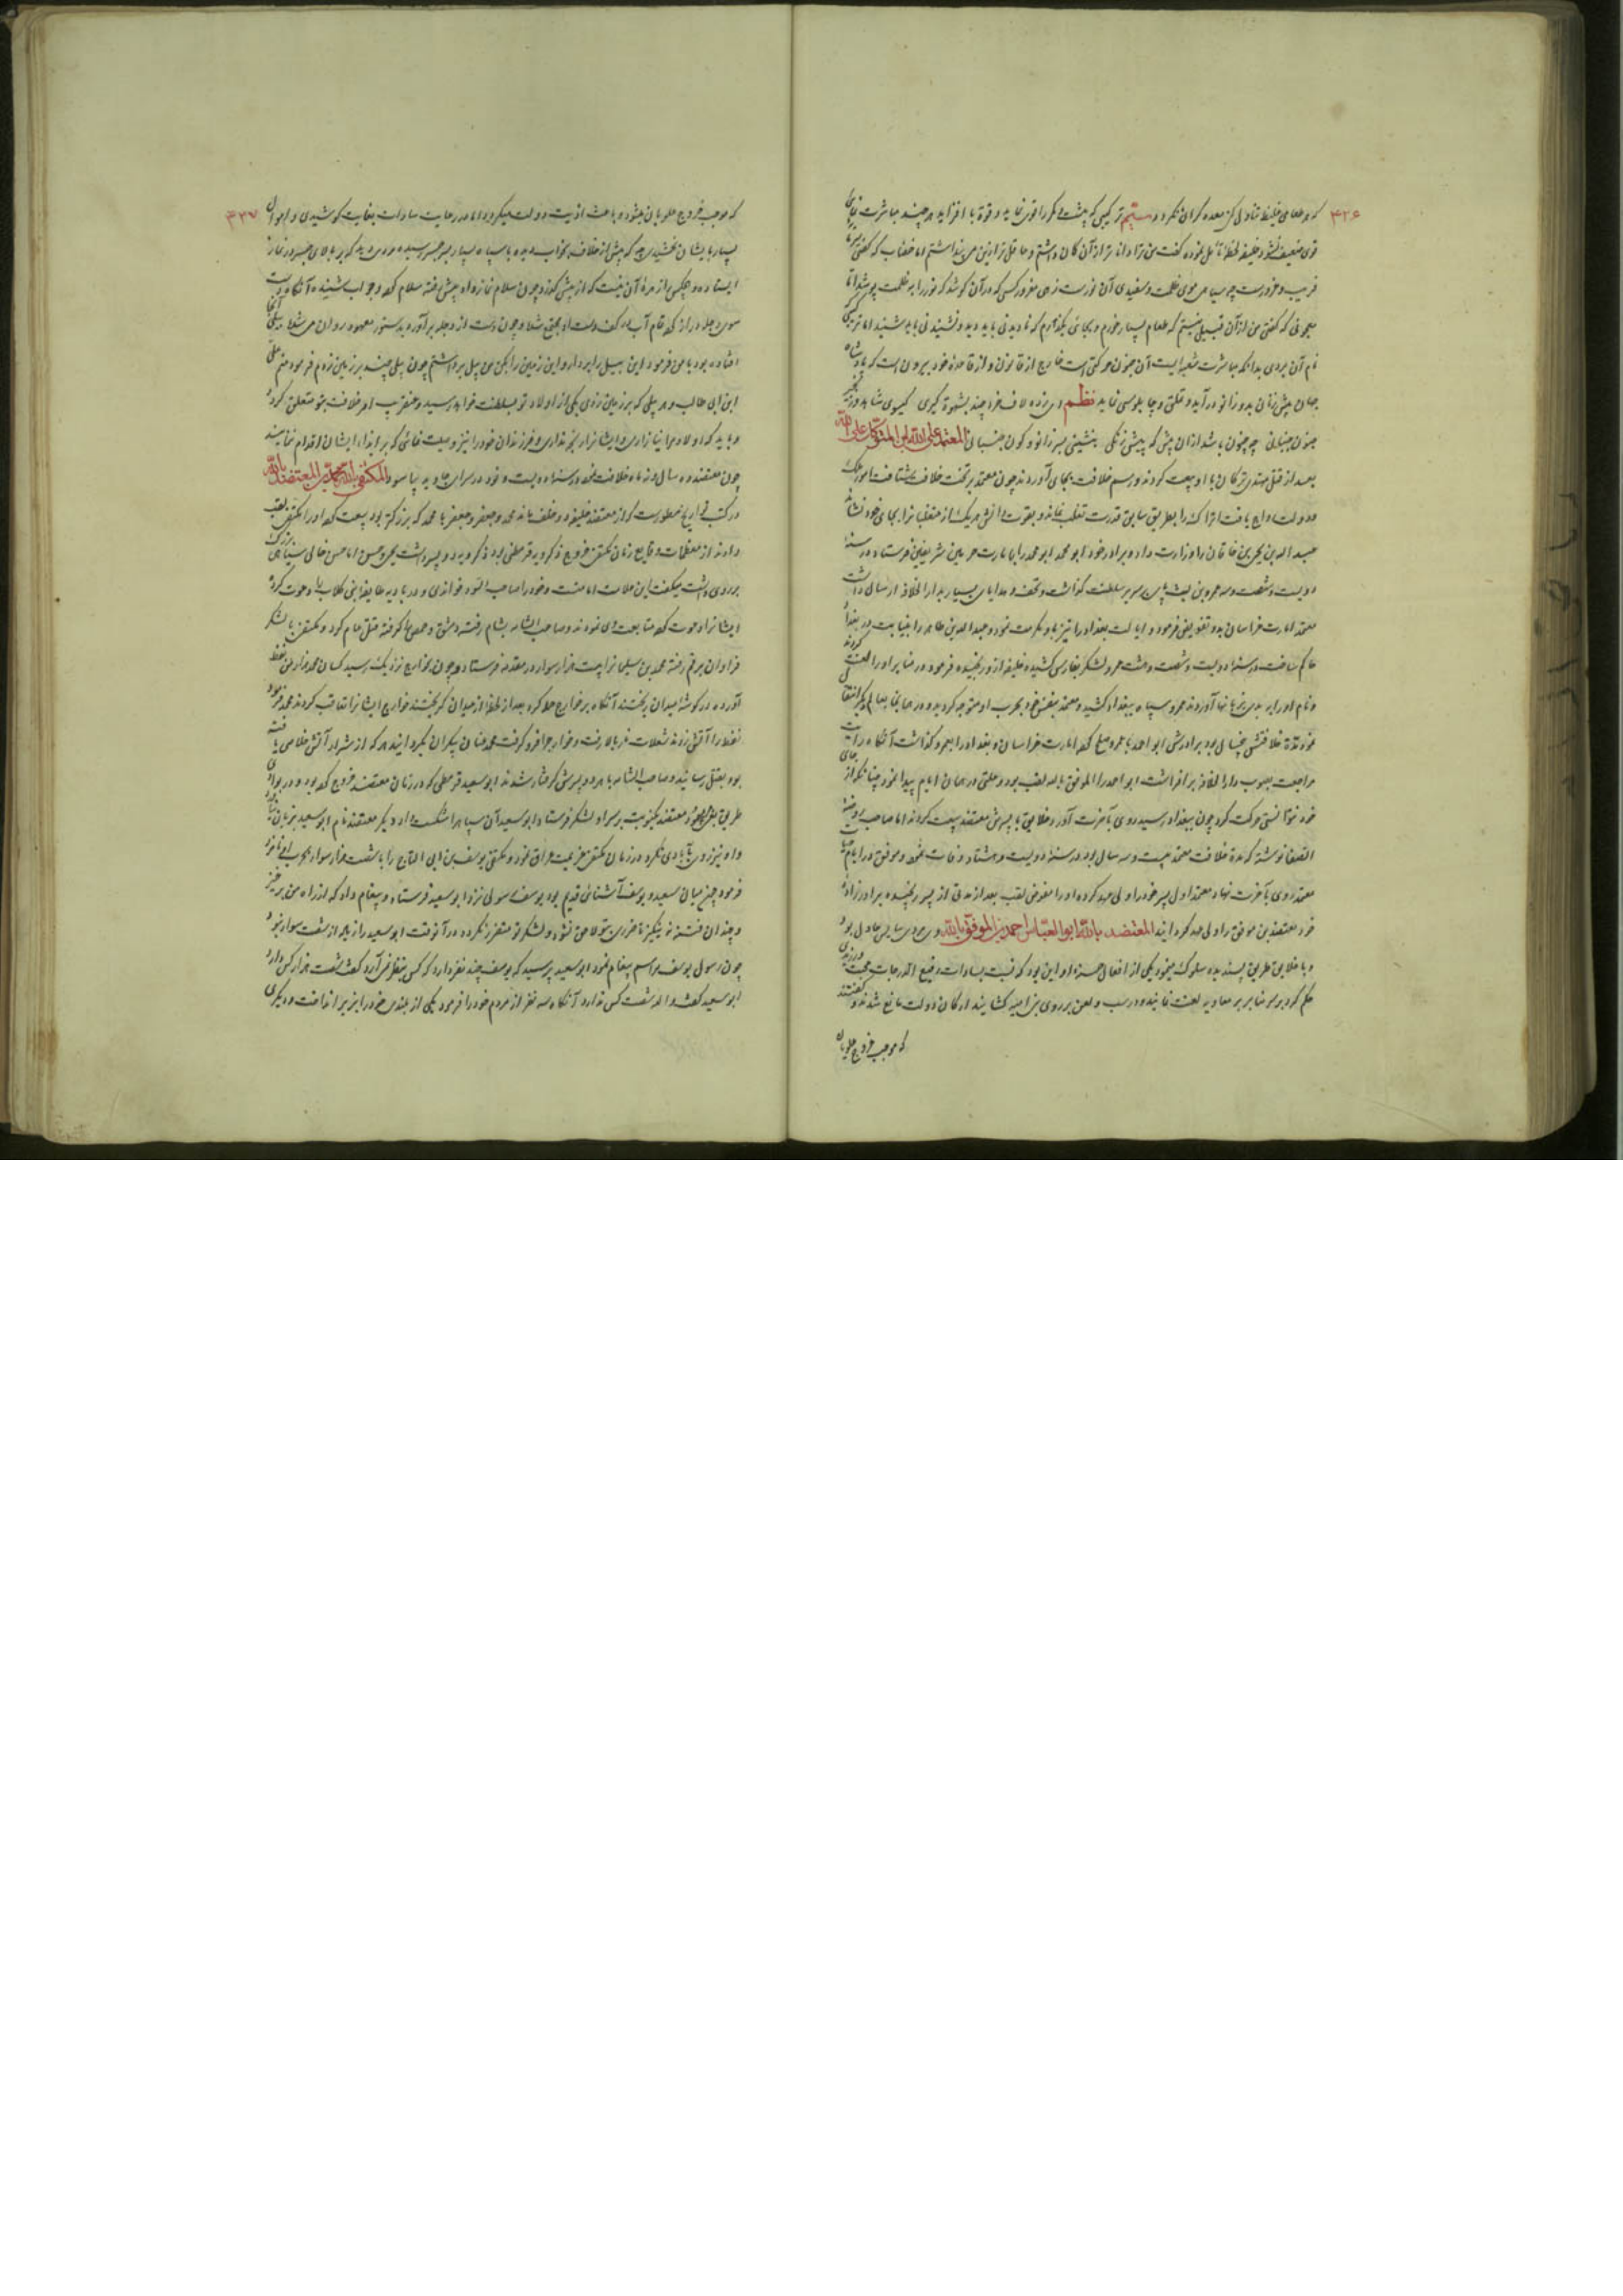 ۴۲۶
که هر طعامی غلیظ تناول کنی معده گران نکردد سیم ترکیبی که پشت و کمر را قوی نماید و قوة باه افزاید هر چند مباشرت نمایی
قوی ضعیف نشود خلیفه لحظهٔ تأمل نموده گفت من ترا داناتر ازان گمان داشتم و عاقل تر ازین می پنداشتم اما خضاب که گفتی
فریب و غرورست چه سیاهی موی ظلمت و سفیدی آن نورست زهی مغرور کسی که در آن کوشد که نور را به ظلمت پوشد اما
معجونی که گفتی من ازان قبیل نیستم که طعام بسیار خورم و بجائی بگذارم که نادیدنی باید دید و نشنیدنی باید شنید اما ترکیبی که
نام آن بردی بدانکه مباشرت شعبه ایست از جنون حرکتی است خارج از قانون و از قاعده خرد بیرون است که پادشاه
جهان پیش زنان بدو زانو درآید و تملق و چاپلوسی نماید نظم ای زده لاف خرد چند بشهوة گیری گیسوی شاهد و زنجیر
جنون جنبانی چه جنون باشد ازان بیش که پیش زنکی بنشینی بسر زانو و کون جنبانی المعتمد علی الله ابن المتوکل علی الله
بعد از قتل مهتدی ترکان با او بیعت کردند و رسم خلافت بجای آوردند چون معتمد بر تخت خلافت بنشست امور ملک
و دولت رواج یافت اتراک را بطریق سابق قدرت تغلب نماند و بقوت دانش هر یک از متغلبان را بجای خود نشاند
عبید الله بن یحیی بن خاقان را وزارت داد و برادر خود ابو محمد را بامارت حرمین شریفین فرستاد در سنه
دویست و شصت و سه عمرو بن لیث پای بر سریر سلطنت گذاشت و تحف و هدایای بسیار بدار الخلافه ارسال داشت
معتمد امارت خراسان بدو تفویض فرمود و ایالت بغداد را نیز باو مکرمت نمود و عبد الله بن طاهر را بنیابت در بغداد
حاکم ساخت در سنه دویست و شصت و هشت عمرو لشکر بفارس کشیده خلیفه ازو رنجیده فرمود در منابر او را لعنت کردند
خود مدة خلافتش برادرش ابو احمد با عمرو صلح کرد امارت خراسان و بغداد را بعمرو گذاشت آنگاه رایت
مراجعت بصوب دار الخلافه برافراشت ابو احمد را الموفق بالله لقب بود و علتی در همان ایام پیدا نمود چنانکه از جای
خود نتوانستی حرکت کرد چون ببغداد رسید روی بآخرت آورد خلایق با پسرش معتضد بیعت کردند اما صاحب روضة
الصفا نوشته که مدة خلافت معتمد بیست و سه سال بود در سنه دویست و هشتاد وفات نمود و موفق در ایام حیات
معتمد روی بآخرت نهاد معتمد اول پسر خود را ولی عهد کرده او را مفوض لقب بعد از مدتی از پسر رنجیده برادرزادهٔ
خود معتضد بن موفق را ولی عهد گردانید المعتضد بالله ابو العباس احمد بن الموفق بالله وی مردی سایس عادل بود
و با خلایق طریق پسندیده سلوک مینمود یکی از افعال حسنه او این بود که نسبت بسادات رفیع الدرجات محبت ورزیدی
حکم کرد بر سر منابر بر معاویه لعنت نمایند و در سب و لعن بر روی بنی امیه گشایند ارکان دولت مانع شدند و گفتند
که موجب خروج علویان
۴۲۷
که موجب خروج علویان میشود و باعث اذیت دولت میگردد اما در رعایت سادات بغایت کوشیدی و اموال
بسیار بایشان بخشیدی چه که پیش از خلافت بخواب دیده با سپاه بسیار بر سر جسر رسیده مردی دید که بر بالای جسر در نماز
ایستاده و هیچکس را زهرهٔ آن نیست که از پیش گذرد چون سلام نماز داد پیش رفته سلام کرد و جواب شنیده آنگاه دست
سوی دجله دراز کرد تمام آب در کف دست او جمع شد و چون دست از دجله برآورد بدستور معهود روان می شد بیلی آنجا
افتاده بود با من فرمود این بیل را بردار و این زمین را بکن من بیل برداشتم چون بیلی چند بر زمین زدم فرمود منم علی
ابن ابی طالب و هر بیلی که بر زمین زدی یکی از اولاد تو بسلطنت خواهد رسید و عنقریب امر خلافت بتو متعلق گردد
و باید که اولاد مرا نیازاری و ایشان را رنجه نداری و فرزندان خود را نیز وصیت نمائی که بر ایذاء ایشان اقدام ننمایند
چون معتضد ده سال و نه ماه خلافت نمود در سنه دویست و نود در سرای جاوید بیاسود المکتفی بالله محمد بن المعتضد بالله
در کتب تواریخ مسطورست که از معتضد خلیفه دو خلف ماند محمد و جعفر و جعفر با محمد که بزرگتر بود بیعت کرد او را مکتفی لقب
دادند از معظمات وقایع زمان مکتفی خروج ذکرویه قرمطی بود ذکرویه دو پسر داشت یحیی و حسن اما حسن خالی سیاهی بزرگ
بر روی داشت میگفت این علامت امامتست و خود را صاحب الشامه خواندی و در بادیه طایفهٔ بنی کلاب را دعوت کرد
ایشان او را دعوت کرده متابعت وی نمودند و صاحب الشامه بشام رفته دمشق و حمص را گرفته قتل عام کرد و مکتفی با لشکر
فراوان برقه رفته محمد بن سلیمان را بیست هزار سوار در مقدمه فرستاد و چون بخوارج نزدیک رسید کسان محمد هزار من نفط
آورده در گوشهٔ میدان ریختند آنگاه بر خوارج حمله کرده بعد از لحظهٔ از میدان گریختند خوارج ایشان را تعاقب کردند محمد فرمود
نفط را آتش زدند شعلات نار بالا رفت و خوارج را فرو گرفت محمد عنان یکران بگردانید هر که از شرار آتش خلاصی یافته
بود بقتل رسانید و صاحب الشامه با هر دو پسرش گرفتار شدند ابو سعید قرمطی که در زمان معتضد خروج کرده بود و در بوادی
معتضد یکنوبت بر سر او لشکر فرستاد ابو سعید آن سپاه را شکست داد دیگر معتضد نام ابو سعید بر زبان نیاورد
و او نیز روی بآبادی نکرد در زمان مکتفی عزیمت عراق نمود و مکتفی یوسف بن ابی الساج را با شصت هزار سوار بحرب او نامزد
فرمود چون میان سعید و یوسف آشنائی قدیم بود یوسف رسولی نزد ابو سعید فرستاد و پیغام داد که از راه من برخیز
و چندان فتنه برمینگیز تا ضرری بتو لاحق نشود و لشکر تو متفرق نگردد در آنوقت ابو سعید را زیاده از شصت سوار نبود
چون رسول یوسف مراسم پیغام نمود ابو سعید پرسید که یوسف چند نفر دارد که کس بنظر نمی آرد گفت شصت هزار کس دارد
ابو سعید گفت والله شصت کس ندارد آنگاه سه نفر از مردم خود را فرمود یکی از بلندی خود را بزیر انداخت و دیگری